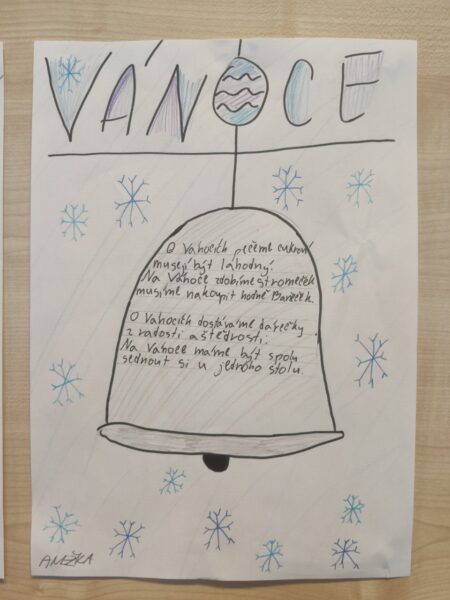 VÁNOCE
O Vánocích pečeme cukroví
musejí být lahodný.
Na Vánoce zdobíme stromeček
musíme nakoupit hodně baněček.
O Vánocích dostáváme dárečky
z radosti a štědrosti.
Na Vánoce máme být spolu
sednout si u jednoho stolu.
ANEŽKA